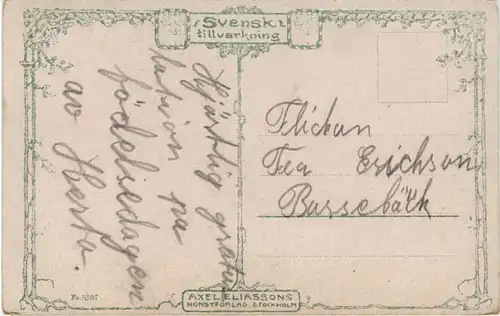 Svensk
tillverkning
Hjärtlig gratu
lation på
födelsedagen
av Herta.
Flickan
Fea Erichson
Bassebäck
No. 5397
AXEL ELIASSONS
KONSTFÖRLAG. STOCKHOLM